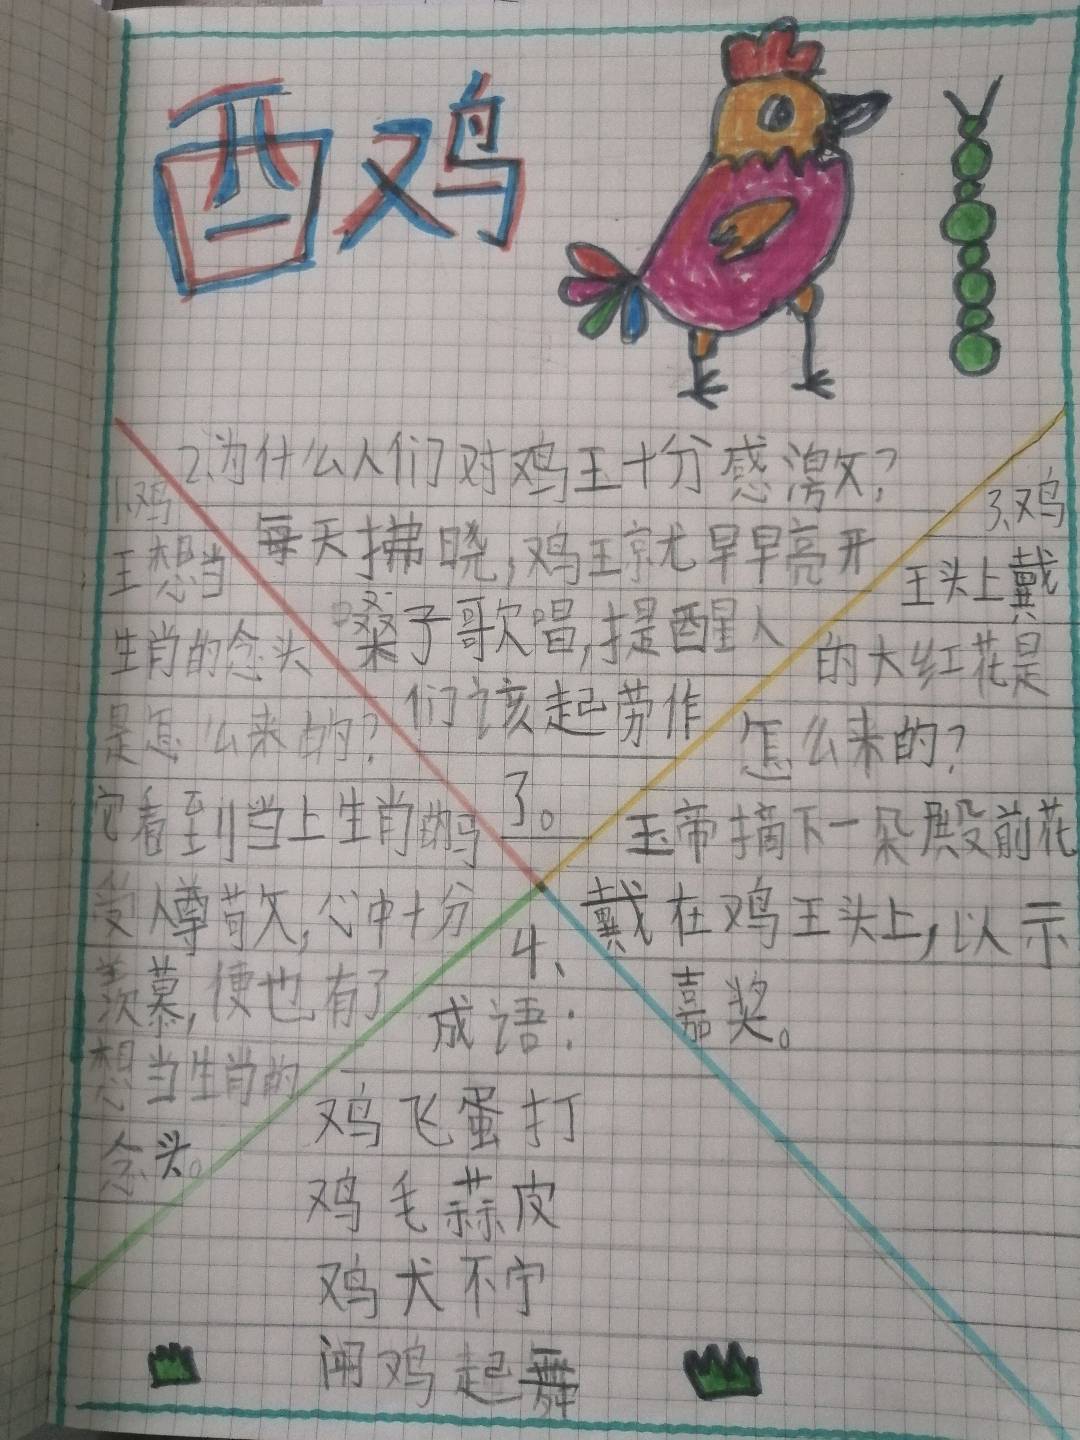 酉鸡
1.鸡
王想当
生肖的念头
是怎么来的?
它看到当上生肖的马
受人尊敬,心中十分
羡慕,便也有了
想当生肖的
念头。
2.为什么人们对鸡王十分感激?
每天拂晓,鸡王就早早亮开
嗓子歌唱,提醒人
们该起劳作
了。
3.鸡
王头上戴
的大红花是
怎么来的?
玉帝摘下一朵殿前花
戴在鸡王头上,以示
嘉奖。
4、
成语:
鸡飞蛋打
鸡毛蒜皮
鸡犬不宁
闻鸡起舞